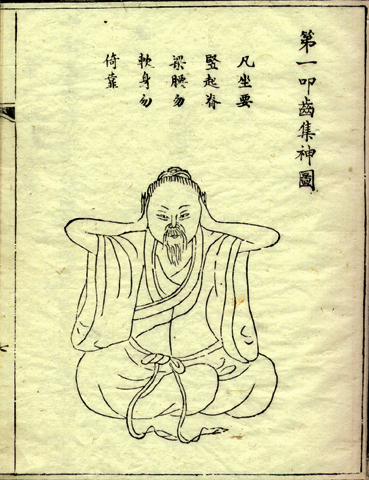 第一叩齒集神圖
凡坐要
竪起脊
梁腰勿
軟身勿
倚靠